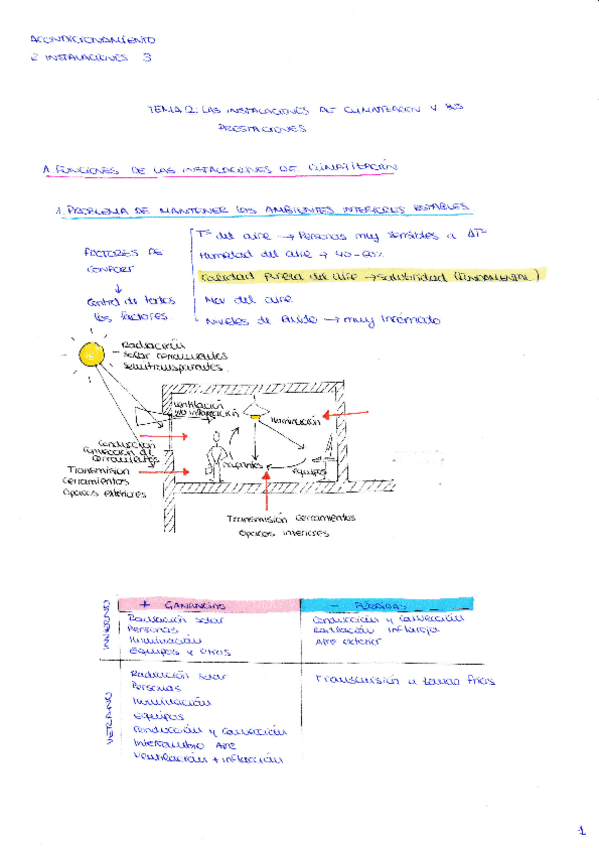 ACONDICIONAMIENTO
E INSTALACIONES 3
TEMA 2: LAS INSTALACIONES DE CLIMATIZACIÓN Y SUS
PRESTACIONES
A. FUNCIONES DE LAS INSTALACIONES DE CLIMATIZACIÓN
1. PROBLEMA DE MANTENER LOS AMBIENTES INTERIORES ESTABLES
FACTORES DE
CONFORT
↓
Control de todos
los factores
Tª del aire → Personas muy sensibles a ΔTª
Humedad del aire → 40-60%
Calidad pureza del aire → salubridad (FUNDAMENTAL)
Mov del aire
Niveles de Ruido → muy incómodo
Radiación
solar cerramientos
semitransparentes
Ventilación
y/o infiltración
Iluminación
Conducción
Convección de
cerramientos
Transmisión
cerramientos
opacos exteriores
Ocupantes
equipos
Transmisión cerramientos
opacos interiores
INVIERNO
+ GANANCIAS
- PÉRDIDAS
Radiación solar
Personas
Iluminación
Equipos y otros
Conducción y convección
Ventilación
Aire exterior
VERANO
Radiación solar
Personas
Iluminación
Equipos
Conducción y convección
Intercambio aire
Ventilación + infiltración
Transmisión a zonas frías
1